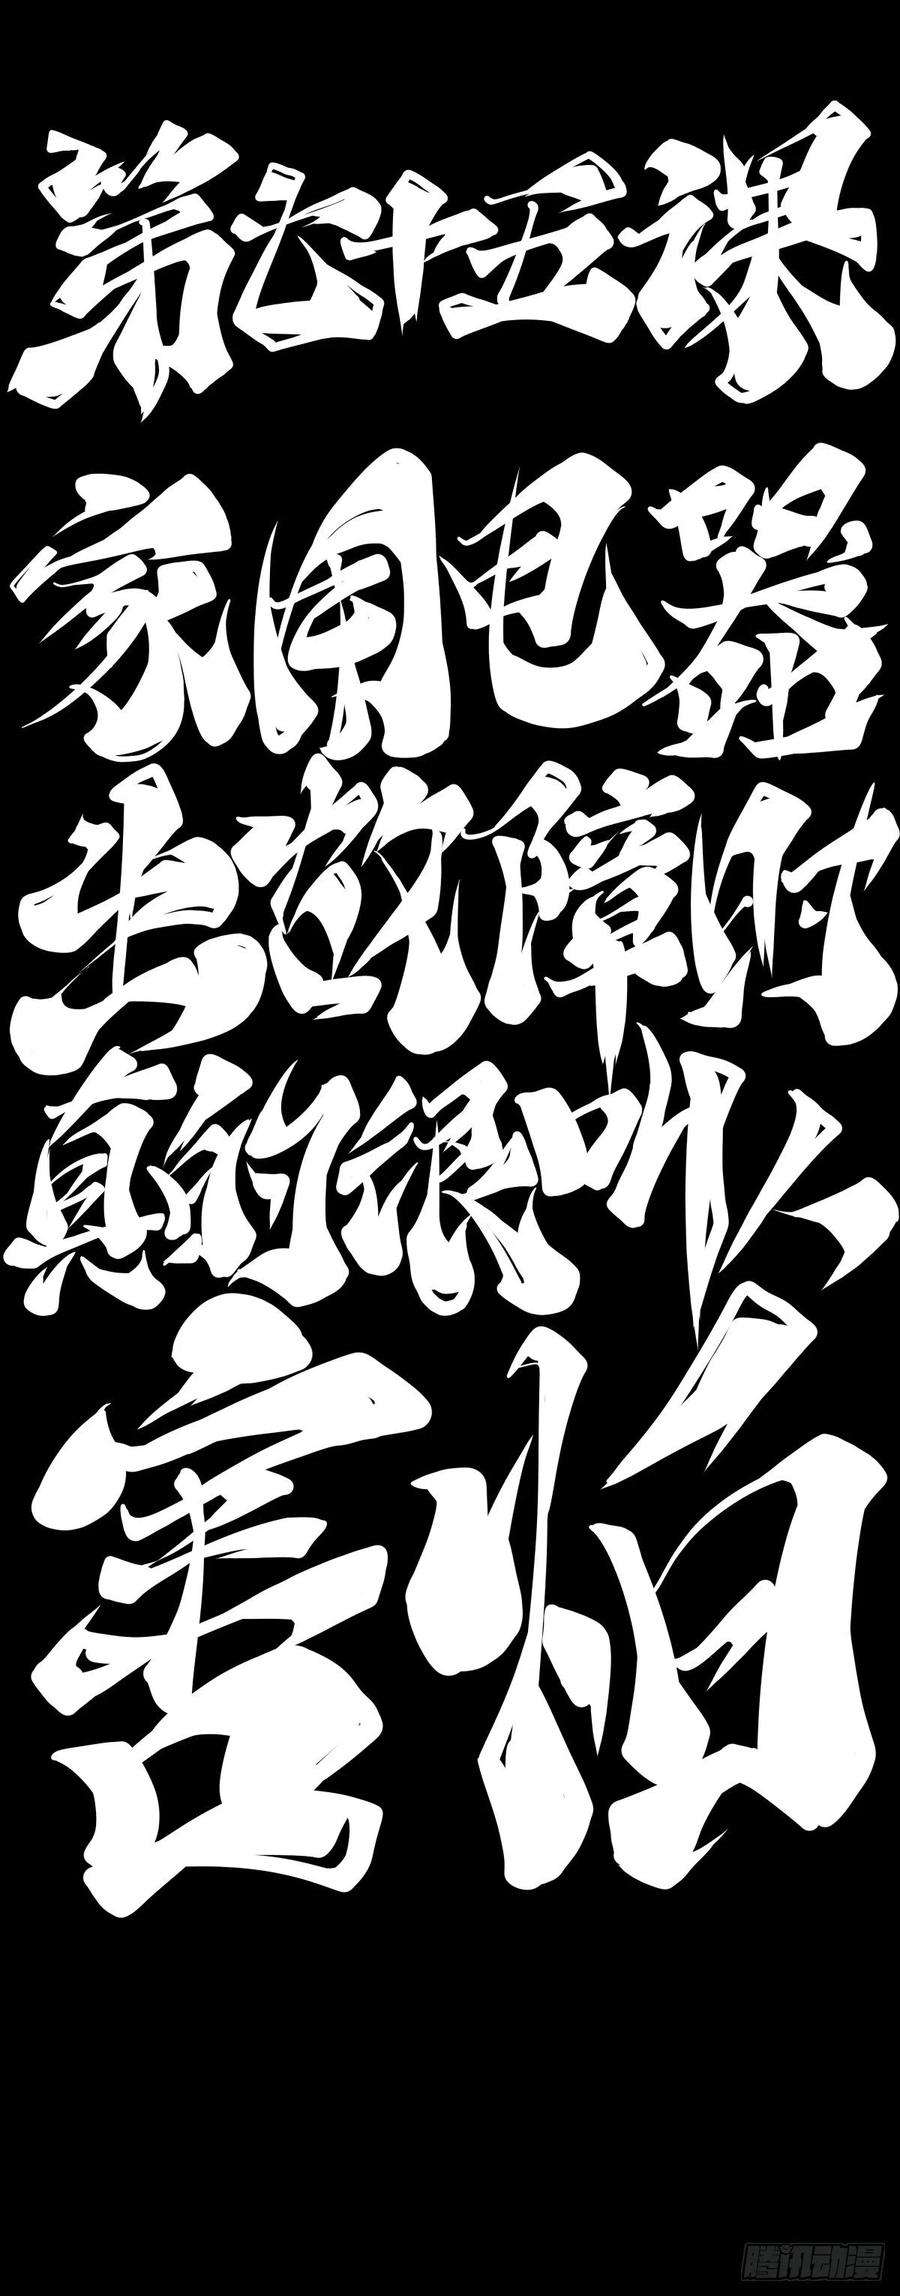 第七十五课
家用电器
出故障时
真的很叫人
害怕
腾讯动漫